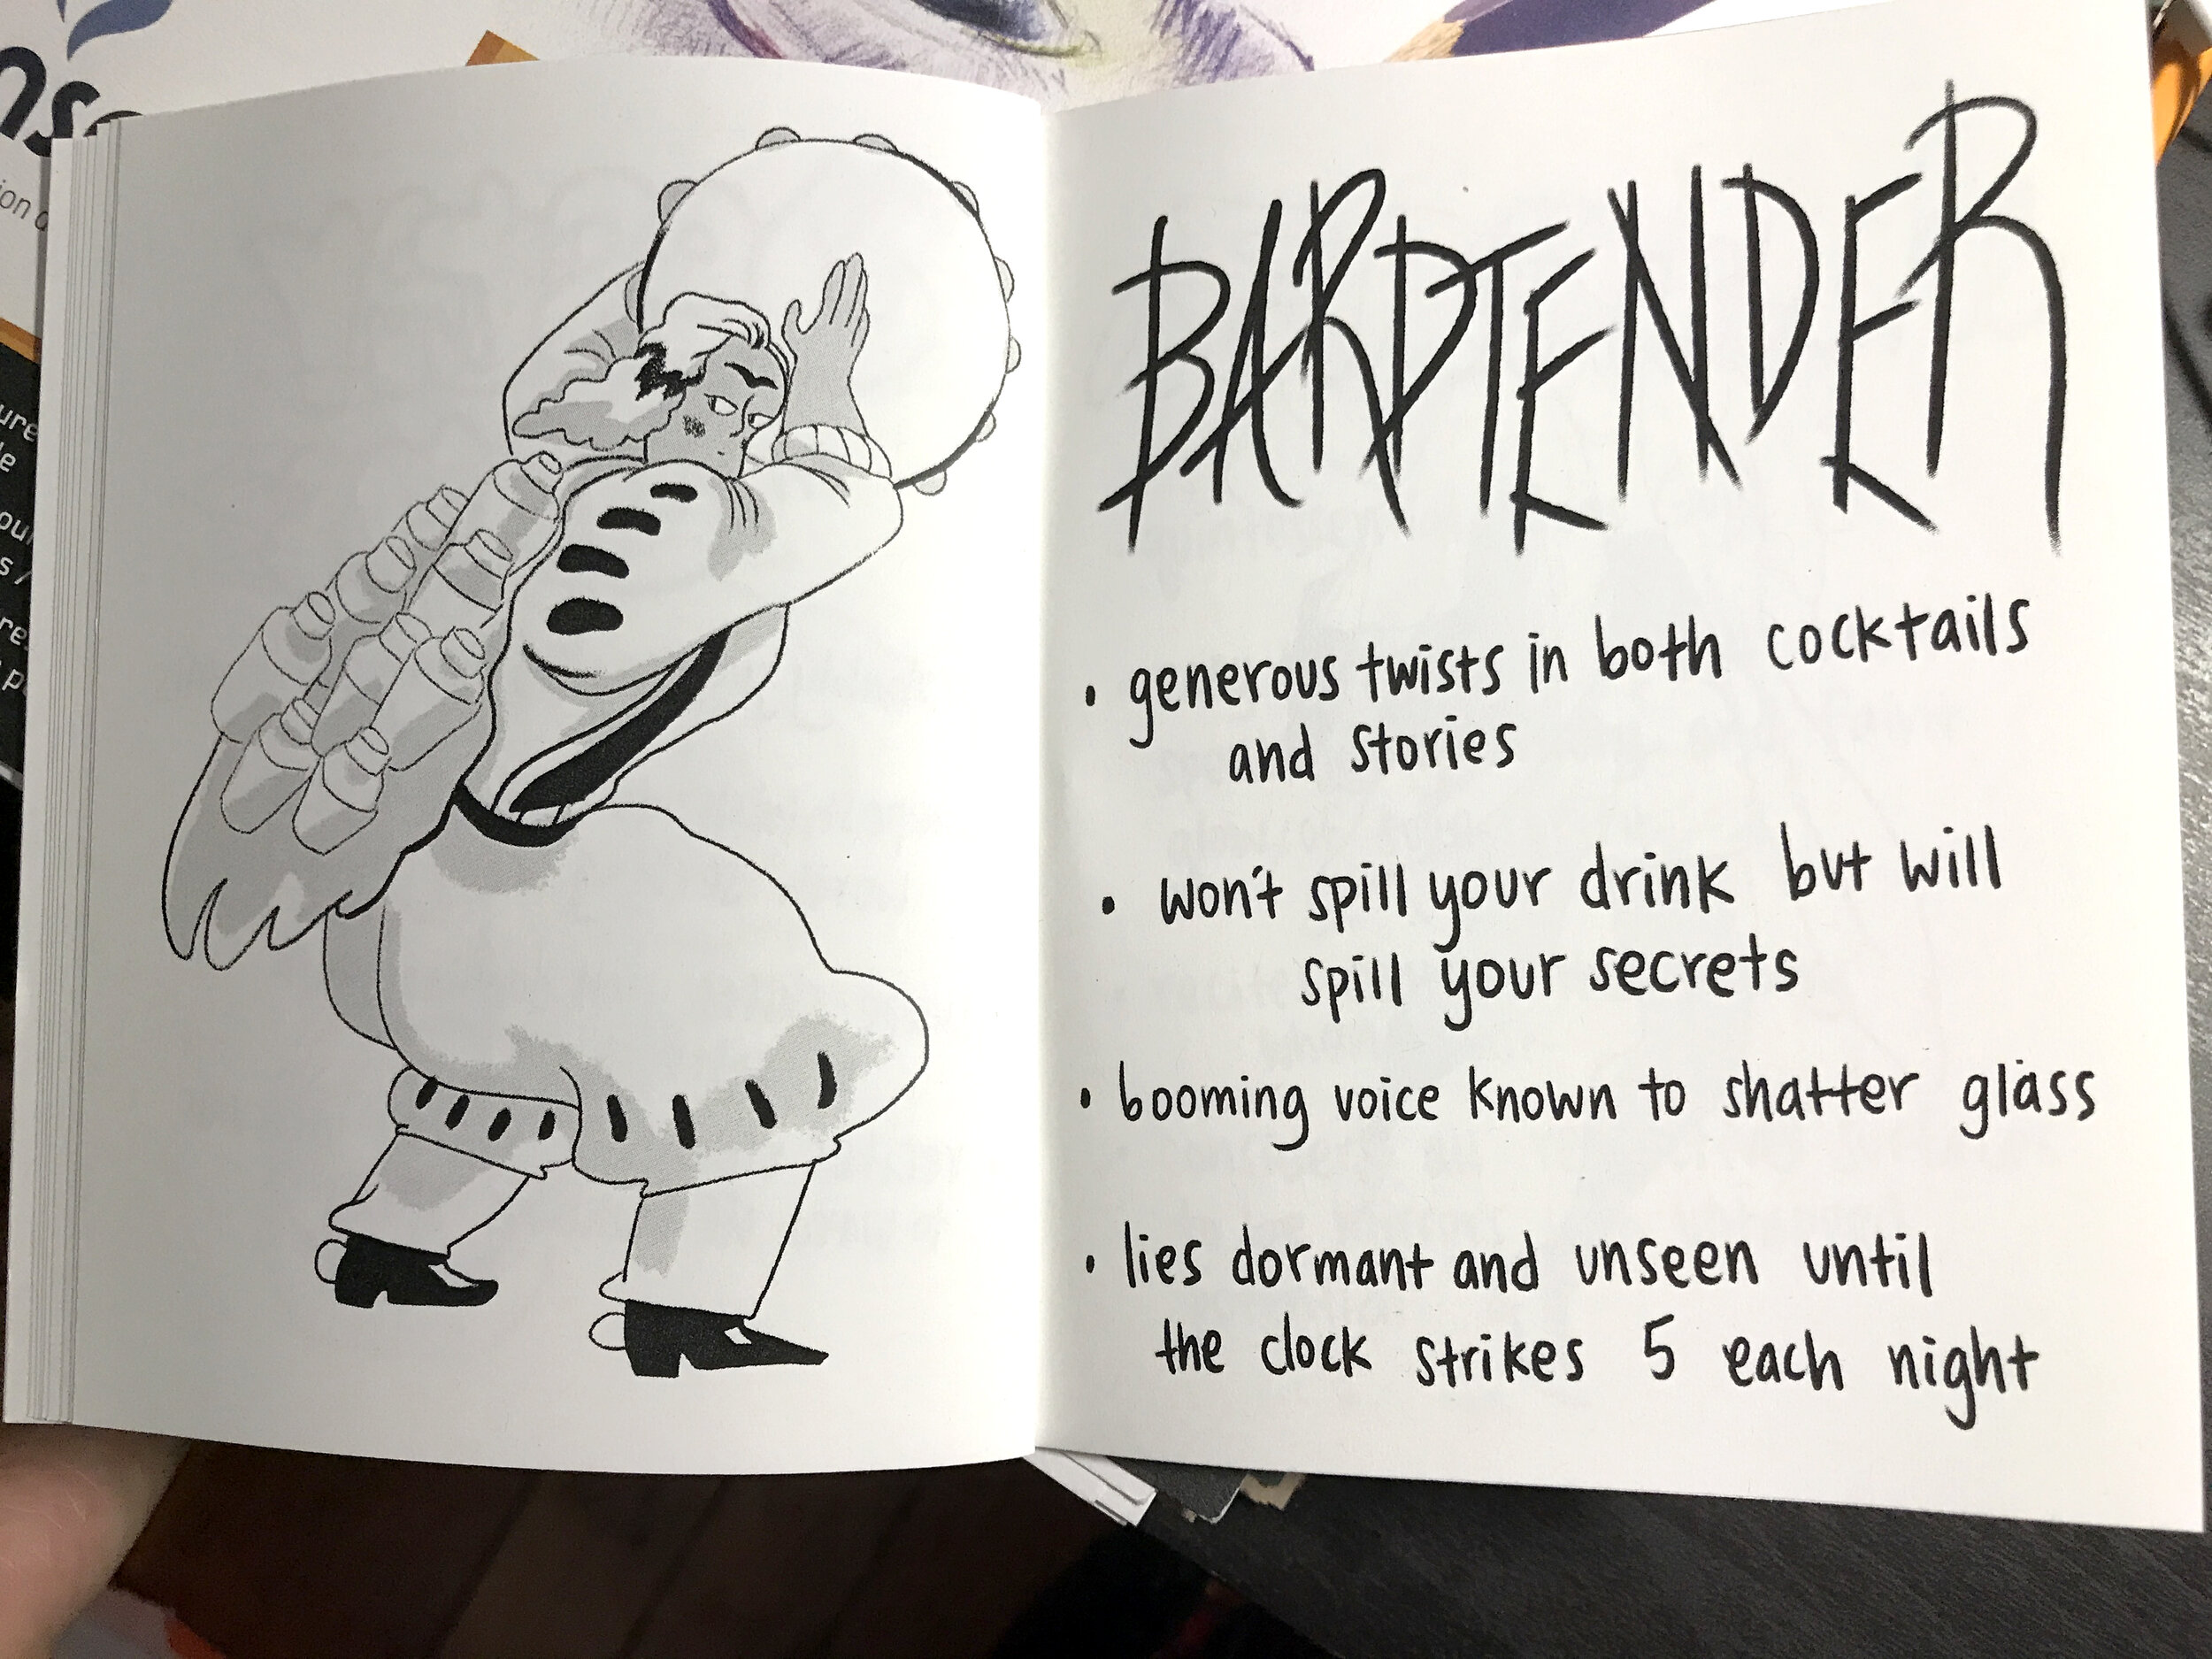 ns
ion
ure
le
our
s/
re
p
BARDTENDER
• generous twists in both cocktails
and stories
• won't spill your drink but will
spill your secrets
• booming voice known to shatter glass
• lies dormant and unseen until
the clock strikes 5 each night